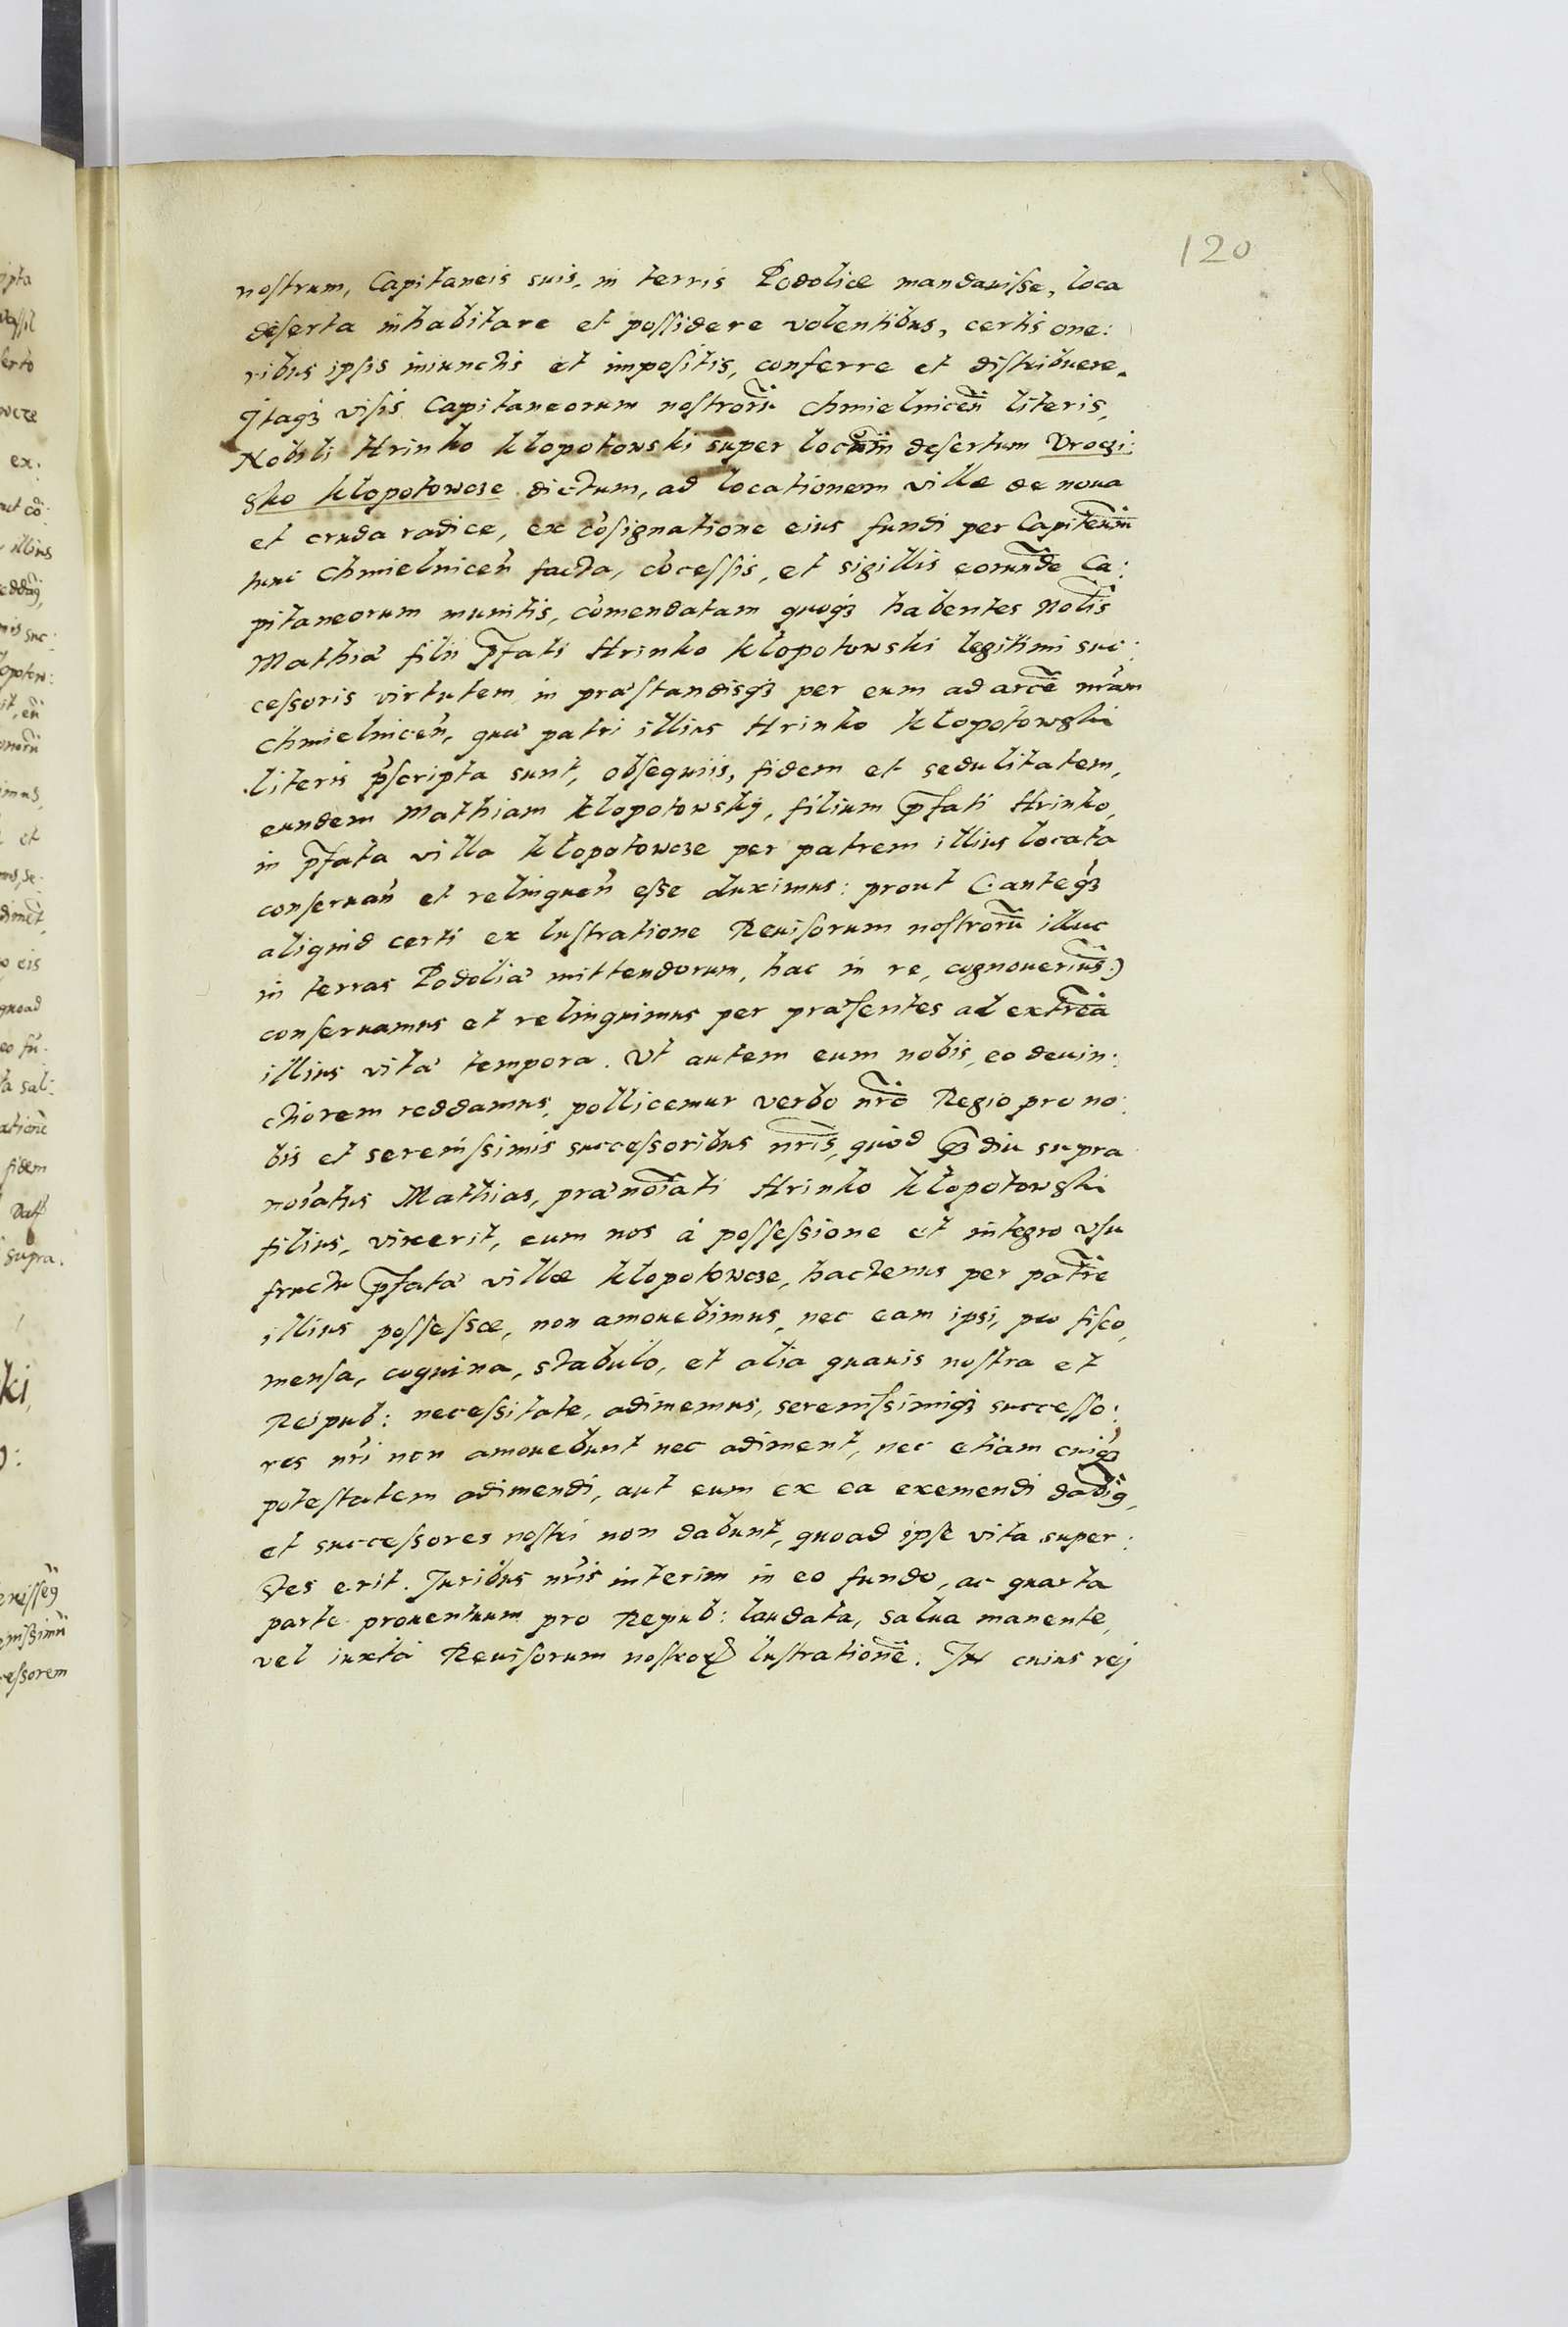 120
nostrum, Capitaneis suis, in terris Podoliæ mandauisse, loca
deserta inhabitare et possidere volentibus, certis one:
ribus ipsis iniunctis et impositis, conferre et distribuere.
Itaqȝ visis Capitaneorum nostrorũ Chmielniceñ literis,
Nobili Hrinko Klopotowski super locum desertum Vroczi:
sko Klopotowcze dictum, ad locationem villæ de noua
et cruda radice, ex cõsignatione eius fundi per Capiteum
tunc Chmielniceñ facta, cõcessis, et sigillis eorundẽ Ca:
pitaneorum munitis, cõmendatam quoqȝ habentes Nobis
Mathiæ filii p̃fati Hrinko Klopotowski legitimi suc:
cessoris virtutem, in præstandisqȝ per eum ad arcẽ nr̃am
Chmielniceñ, quæ patri illius Hrinko Klopotowski
literis p̃scripta sunt, obsequiis, fidem et sedulitatem,
eundem Mathiam Klopotowskÿ, filium p̃fati Hrinko,
in p̃fata villa Klopotowcze per patrem illius locata
conseruañ et relinqueñ esse duximus: prout (anteqȝ̃
aliquid certi ex lustratione Reuisorum nostrorũ illuc
in terras Podoliæ mittendorum, hac in re, cognouerims̃)
conseruamus et relinquimus per præsentes ad extrẽa
illius vitæ tempora. Vt autem eum nobis, eo deuin:
ctiorem reddamus, pollicemur verbo nr̃o Regio pro no:
bis et serenissimis successoribus nr̃is, quòd qȝ̃ diu supra
noĩatus Mathias, prænoĩati Hrinko Klopotowski
filius, vixerit, eum nos à possessione et integro vsu
fructu p̃fatæ villæ Klopotowcze, hactenus per patrẽ
illius possessæ, non amouebimus, nec eam ipsi, pro fisco,
mensa, coquina, stabulo, et alia quauis nostra et
Reipub: necessitate, adimemus, serenissimiqȝ successo:
res nr̃i non amouebunt nec adiment, nec etiam cuiqȝ̃
potestatem adimendi, aut eum ex ea exemendi dabim9,
et successores nostri non dabunt, quoad ipse vita super:
stes erit. Juribus nr̃is interim in eo fundo, ac quarta
parte prouentuum pro Repub: laudata, salua manente,
vel iuxta Reuisorum nostroꝝ lustrationẽ. In cuius rej